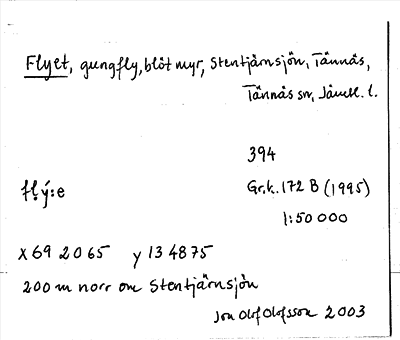 Flyet, gungfly, blöt myr, Stentjärnsjön, Tännäs,
Tännäs sn, Jämtl. l.
394
flý:e
Gr.k. 172 B (1995)
1:50 000
x 69 2065 y 134875
200 m norr om Stentjärnsjön
Jon Olof Olofsson 2003